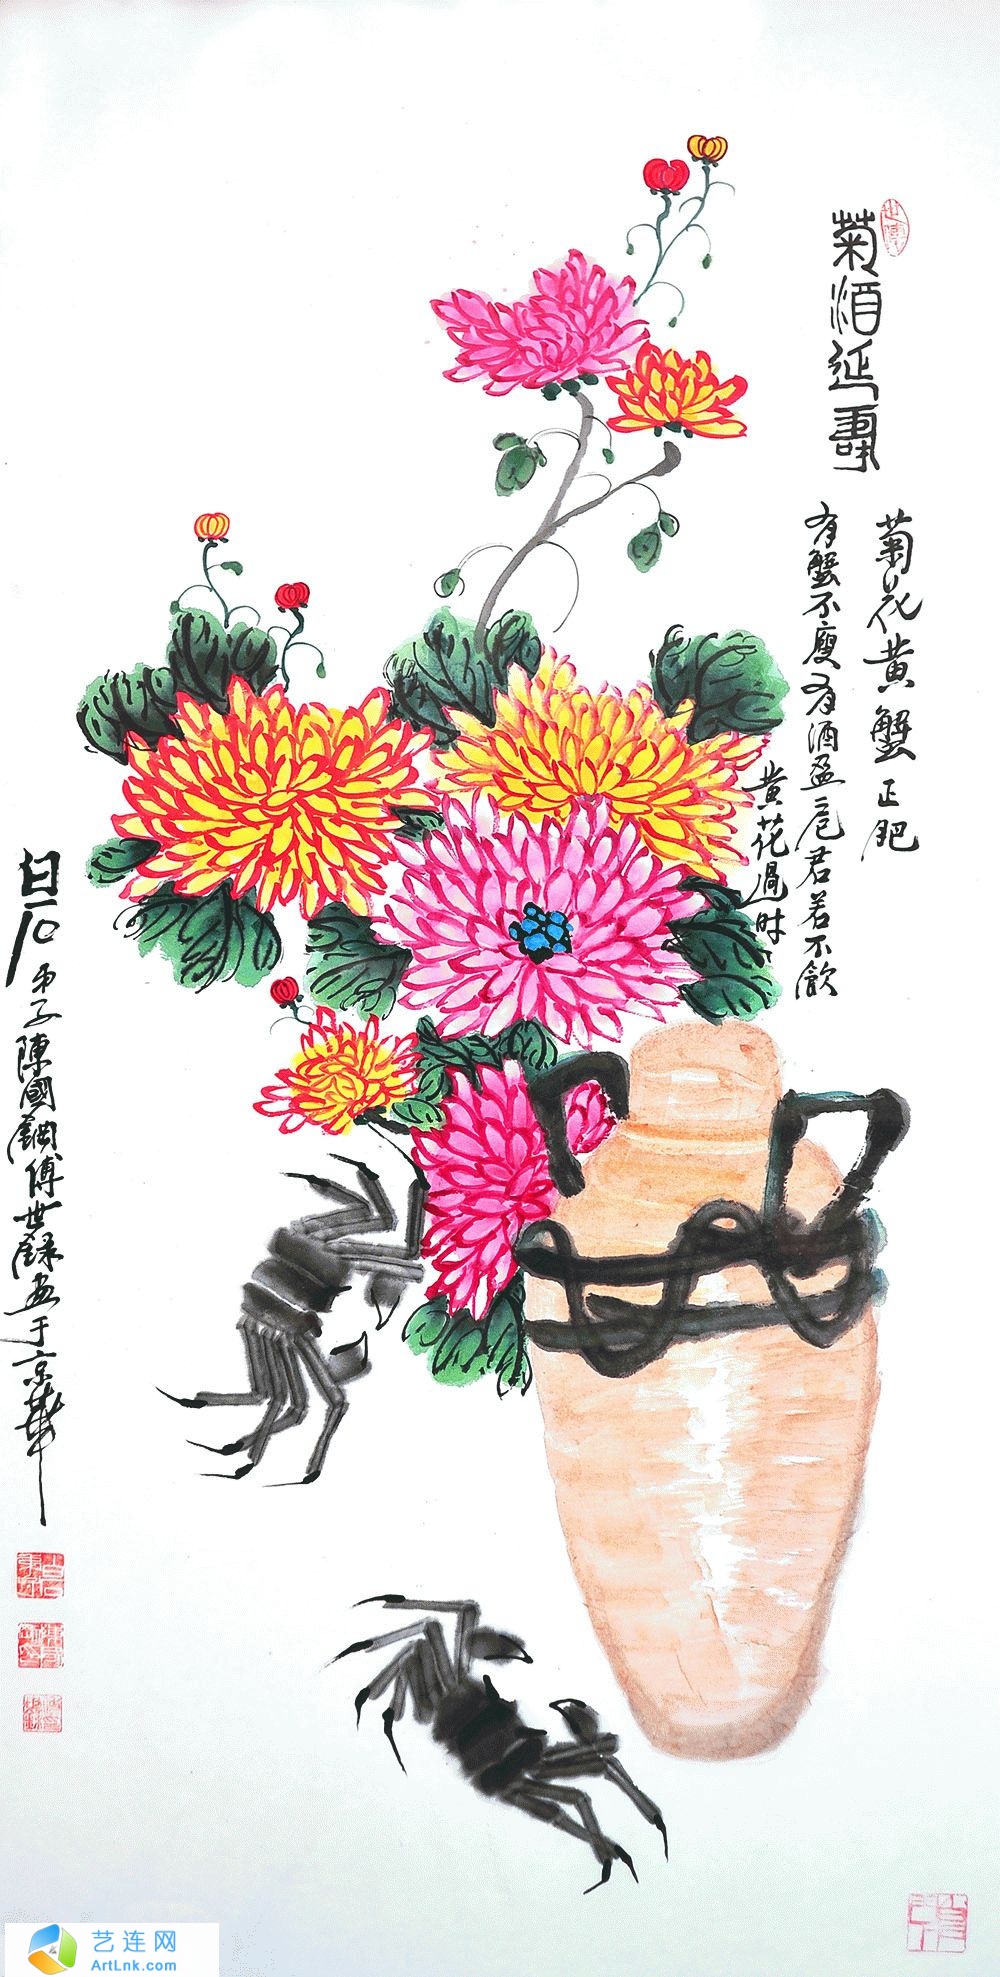 菊酒延壽
菊花黄蟹正肥
有蟹不瘦有酒盈卮君若不飲
黄花過时
白石弟子陳國錮傅世録画于京華
艺连网
ArtLnk.com